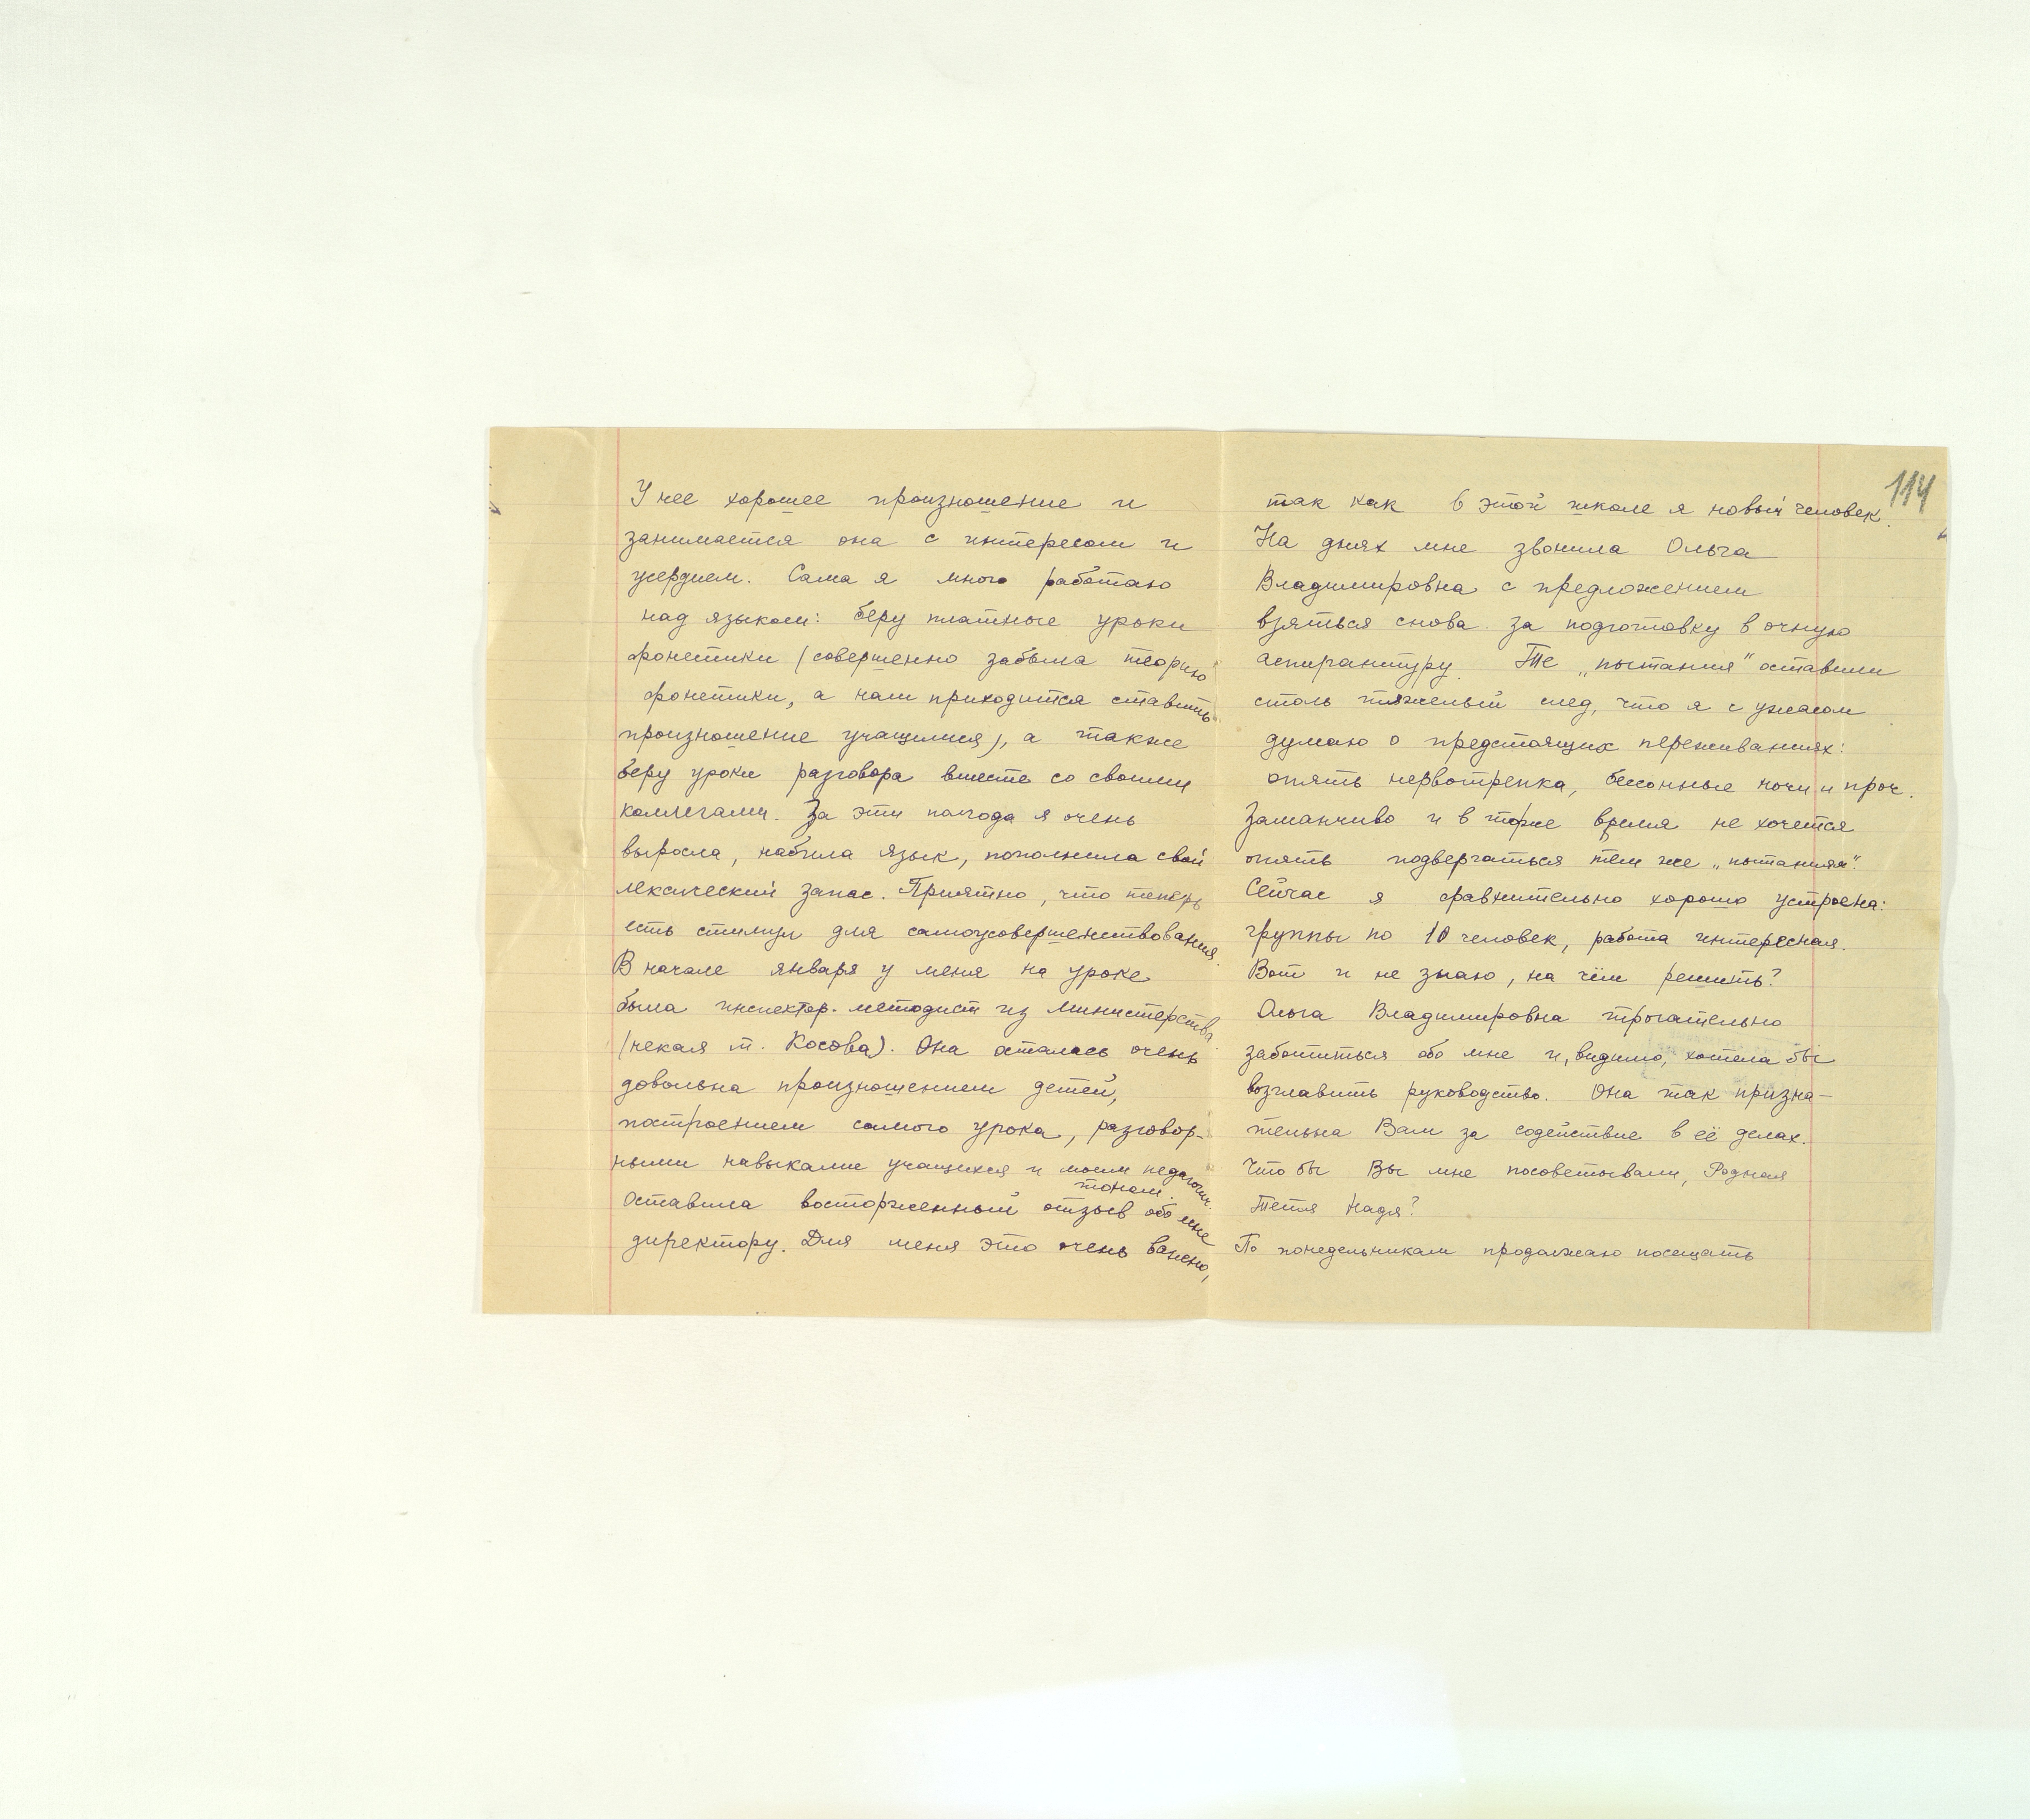 У нее хорошее произношение и
занимается она с интересом и
усердием. Сама я много работаю
над языком: беру платные уроки
фонетики (совершенно забыла теорию
фонетики, а нам приходится ставить
произношение учащимся), а также
беру уроки разговора вместе со своими
коллегами. За эти полгода я очень
выросла, набила язык, пополнила свой
лексический запас. Приятно, что теперь
есть стимул для самоусовершенствования.
В начале января у меня на уроке
была инспектор-методист из Министерства
(некая т. Косова). Она осталась очень
довольна произношением детей,
построением самого урока, разговор-
ными навыками учащихся и моим педагогич.
тоном.
Оставила восторженный отзыв обо мне
директору. Для меня это очень важно,
114
так как в этой школе я новый человек.
На днях мне звонила Ольга
Владимировна с предложением
взяться снова за подготовку в очную
аспирантуру. Те „пытания" оставили
столь тяжелый след, что я с ужасом
думаю о предстоящих переживаниях:
опять нервотрепка, бессонные ночи и проч.
Заманчиво и в тоже время не хочется
опять подвергаться тем же „пытаниям".
Сейчас я сравнительно хорошо устроена:
группы по 10 человек, работа интересная.
Вот и не знаю, на чём решить?
Ольга Владимировна трогательно
заботиться обо мне и, видимо, хотела бы
возглавить руководство. Она так призна-
тельна Вам за содействие в её делах.
Что бы Вы мне посоветывали, Родная
Тетя Надя?
По понедельникам продолжаю посещать